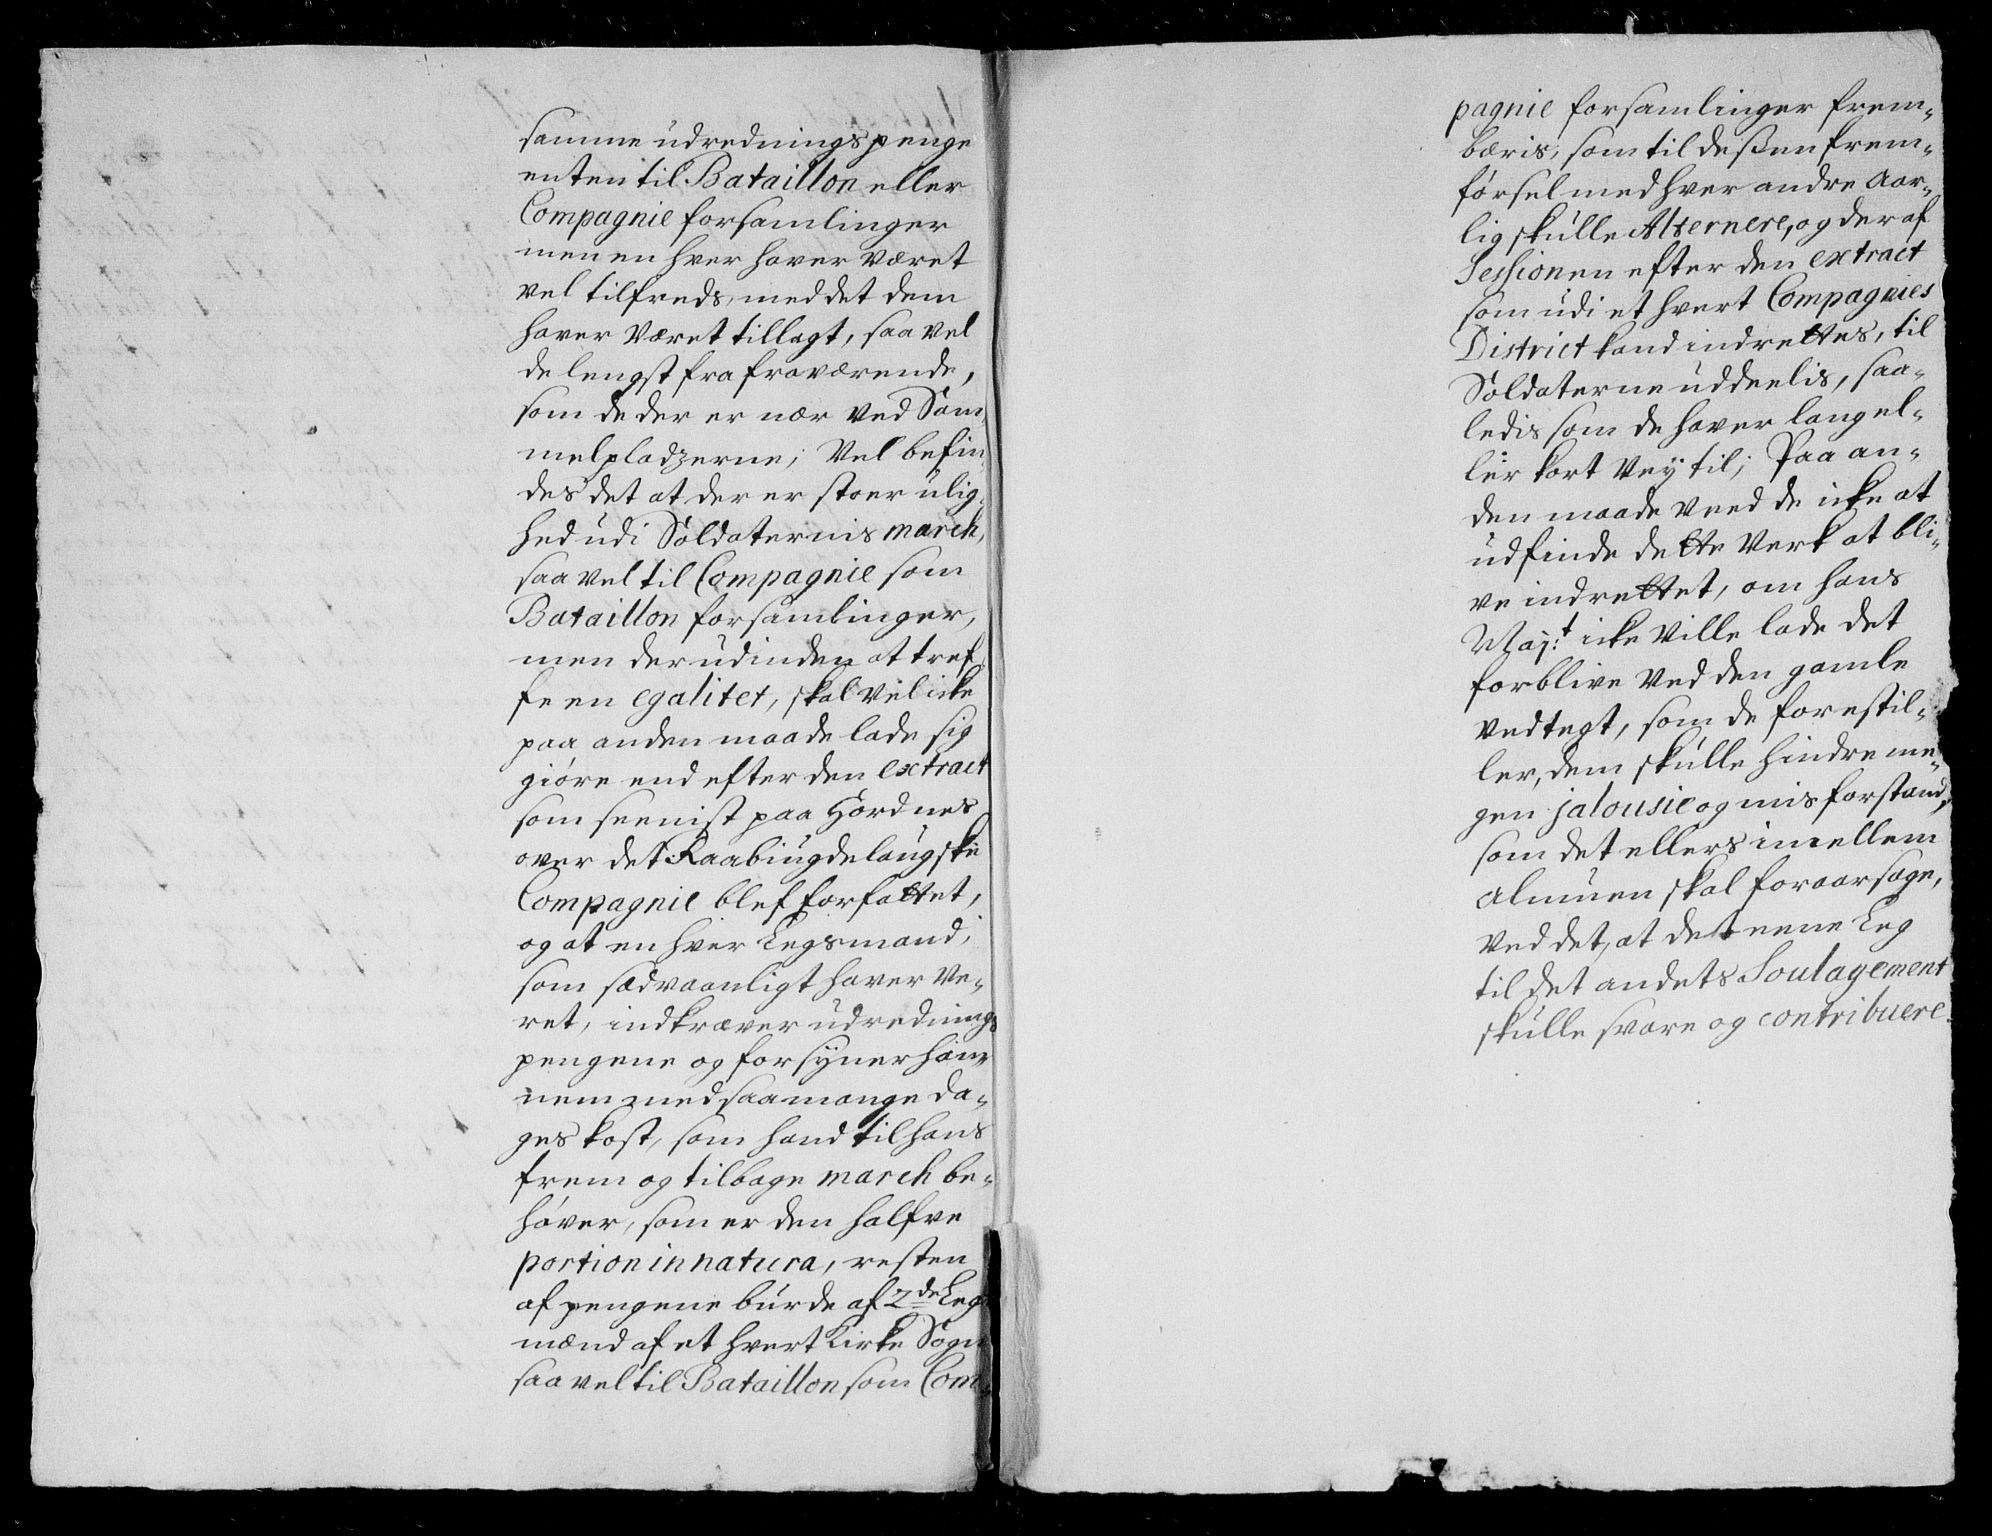 samme udrednings penge
enten til Bataillon eller
Compagnie forsamlinger
men en hver haver været
vel tilfreds, med det dem
haver været tillagt, saa vel
de lengst fra fraværende,
som de der er nær ved Sam,
melpladzerne; Vel befin,
des det at der er stoer ulig,
hed udi Soldaternis march,
saa vel til Compagnie som
Bataillon forsamlinger,
men der udinden at tref,
fe en egalitet, skal vel icke
paa anden maade lade sig
giøre end efter den extract
som seenist paa Hordnes
over det Raabiugdelaugske
Compagnie blef forfattet,
og at en hver Legsmand,
som sædvaanligt haver ve,,
ret, indkræver udrednings
pengene og forsyner ham,,
nem med saa mange da,,
ges kost, som hand til hans
frem og tilbage march be,,
høver, som er den halfve
portion in natura, resten
af pengene burde af 2de Leg
mænd af et hvert Kirke Sogn
saa vel til Bataillon som Com,,
pagnie forsamlinger frem,,
bæris, som til deßen frem,,
førsel med hver andre Aar,,
lig skulle Alternere, og der af
Sessionen efter den extract
som udi et hvert Compagnies
District kand indrettes, til
Soldaterne uddeelis, saa,,
ledis som de haver lang el,,
ler kort Vey til; Paa an,,
den maade veed de icke at
udfinde dette Verk at bli,,
ve indrettet, om hans
Maj:t icke ville lade det
forblive ved den gamle
vedtegt, som de forestil,,
ler, dem skulle hindre me,,
gen jalousie og misforstand,
som det ellers imellem
almuen skal foraarsage,
ved det, at det eene Leg
til det andets Soulagement
skulle svare og contribuere.